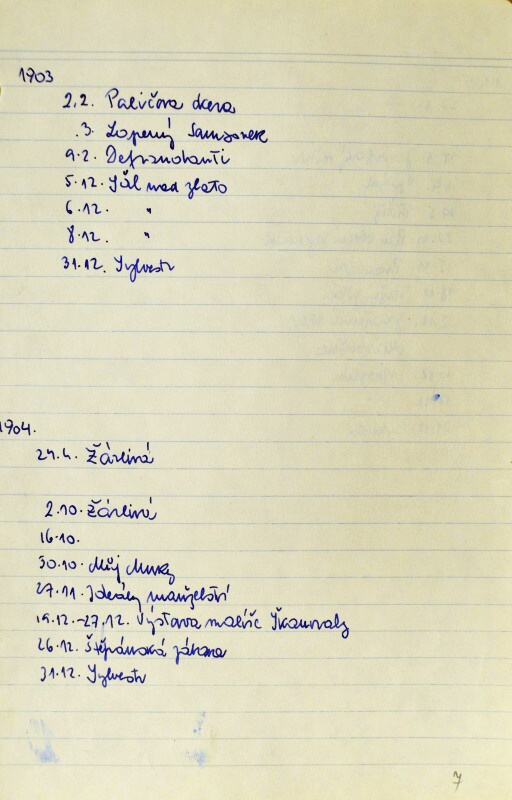 1903
2.2. Paličova dcera
.3. Loperný Samsonek
9.2. Defraudanti
5.12. Sůl nad zlato
6.12. "
8.12. "
31.12. Sylvestr
1904.
24.4. Žárlivá
2.10. Žárlivá
16.10.
30.10. Můj
27.11. Ideály manželství
19.12.-27.12. Výstava malíře
26.12. Štěpánská zábava
31.12. Sylvestr
7